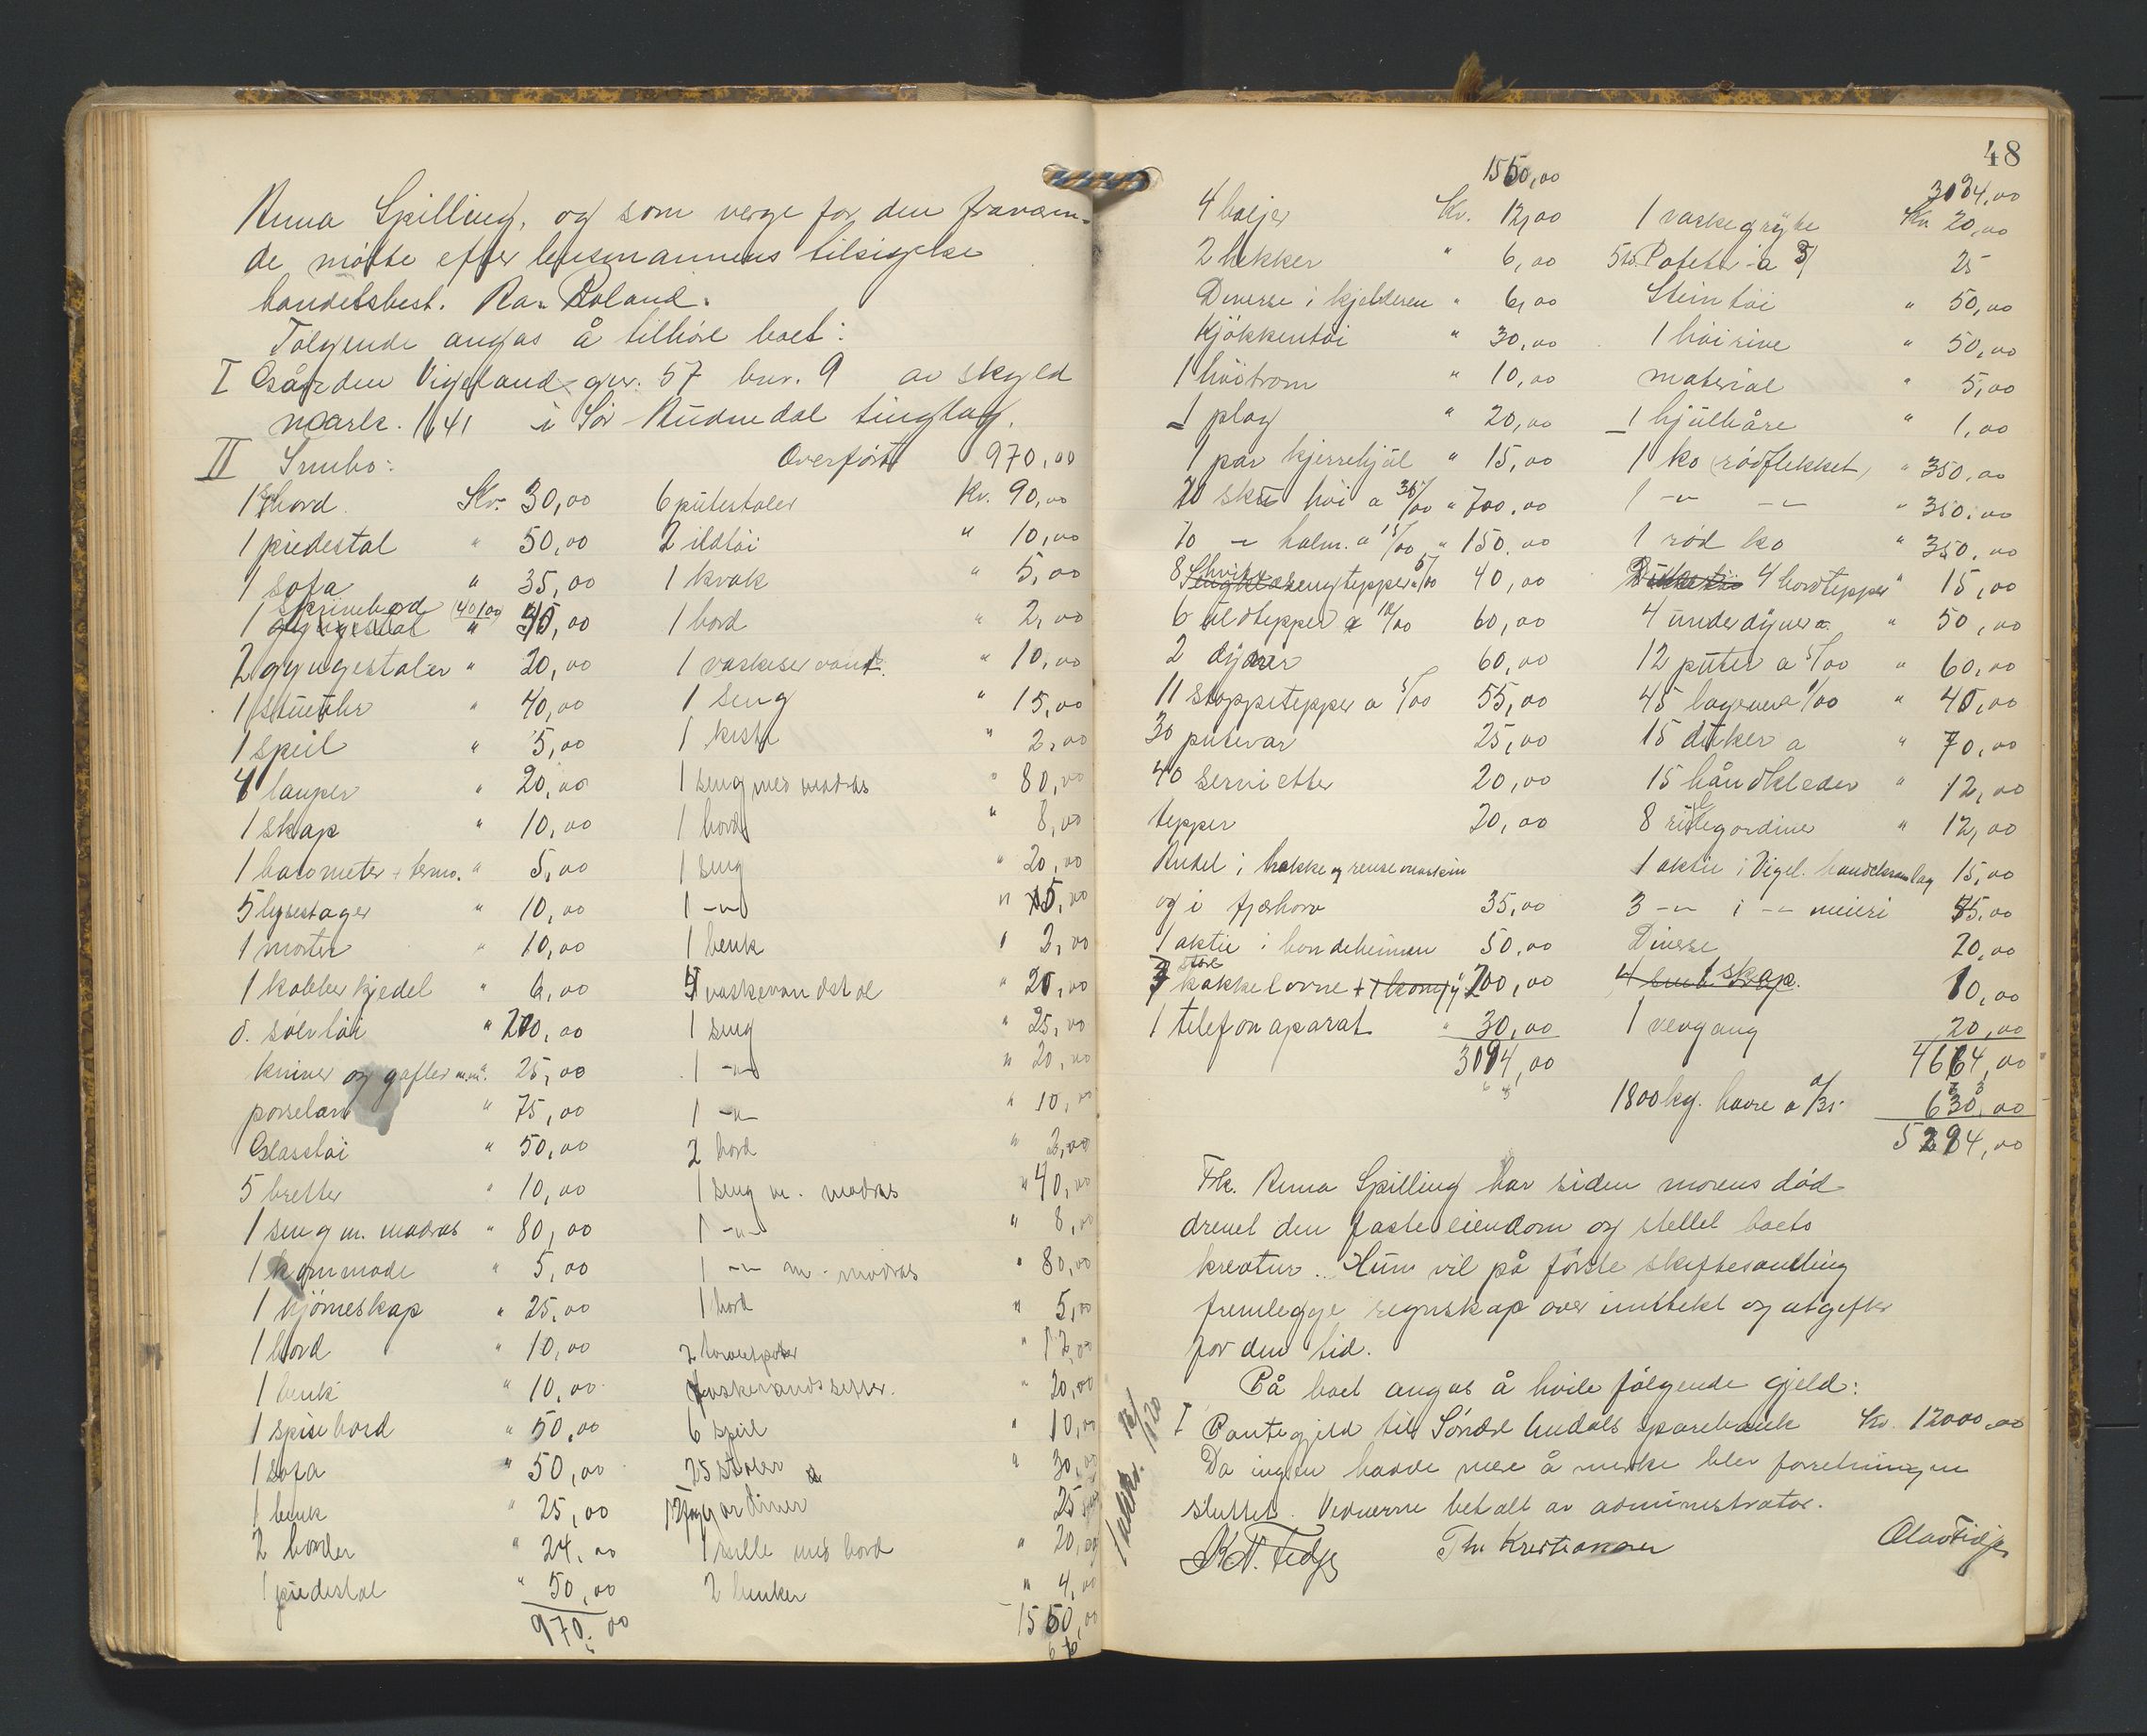 Anna Spilling, og som verge for den fraværen-
de møtte efter lensmannens tilsigelse
handelsbest. Roland.
Følgende angas å tilhøre boet:
I Gården Vigeland gnr. 57 bnr. 9 av skyld
mark. 1,41 i Sør Audnedal tinglag.
II Innbo:
1 bord Kr. 30,00
1 piedestal " 50,00
1 sofa " 35,00
1 skrivebord (40/00) "
2 gyngestoler " 20,00
1 stueuhr " 40,00
1 speil " 5,00
4 lamper " 20,00
1 skap " 10,00
1 barometer + termo. " 5,00
5 lysestager " 10,00
1 morter " 10,00
1 kobberkjedel " 6,00
d. sølvtøi "
kniver og gafler m.m. 25,00
porselan " 75,00
Glasstøi " 50,00
5 bretter " 10,00
1 seng m. madras " 80,00
1 kommode " 5,00
1 hjørneskap " 25,00
1 bord " 10,00
1 benk " 10,00
1 spisebord " 50,00
1 sofa " 50,00
1 benk " 25,00
2 border " 24,00
1 piedestal " 50,00
970,00
Overført 970,00
6 putestoler Kr. 90,00
2 ildtøi " 10,00
1 krak " 5,00
1 bord " 2,00
1 vaskeservant. " 10,00
1 seng " 15,00
1 kiste " 2,00
1 seng med madras " 80,00
1 bord " 8,00
1 seng " 20,00
1 -"- " 15,00
1 benk " 2,00
vaskevandstol "
1 seng " 25,00
1 -"- " 20,00
1 -"- " 10,00
2 bord " 2,00
1 seng m. madras " 40,00
1 -"- " 8,00
1 -"- m. madras " 80,00
1 bord " 5,00
2 " 12,00
vaskevandsetter. " 20,00
6 speil " 10,00
25 stoler " 30,00
12 fag gardiner 25
1 rulle med bord " 20,00
2 benker " 4,00
1550,00
48
1550,00
4 baljer Kr. 12,00
2 hekker " 6,00
Diverse i kjelderen " 6,00
Kjøkkentøi " 30,00
1 " 10,00
1 plog " 20,00
1 par kjerrehjul " 15,00
20 sku høi a 35/00 " 700,00
10 -"- halm. a 15/00 " 150,00
8 hvite sengtepper a 5/00 40,00
6 uldtepper a 10/00 60,00
2 dyner 60,00
11 stoppetepper a 5/00 55,00
30 putevar 25,00
40 servietter 20,00
tepper 20,00
Andel i hakke og rensemaskin
og i 35,00
1 aktie i bondeheimen 50,00
3 store kakkelovne + 1 komfyr 200,00
1 telefonaparat " 30,00
3094,00
3094,00
1 vaskegryte Kr 20,00
5 to. Poteter a 5/ 25
Steintøi " 50,00
1 høirive " 50,00
material " 5,00
1 hjulbåre " 1,00
1 ko (rødflekket) " 350,00
1 -"- -"- " 350,00
1 rød ko " 350,00
4 bordtepper " 15,00
4 underdyner a " 50,00
12 puter a 5/00 " 60,00
45 lagener a 1/00 " 45,00
15 duker a " 70,00
15 håndkleder " 12,00
8 rullegardiner " 12,00
1 aktie i Vigel. handelsamlag 15,00
3 -"- i -"- meieri 45,00
Diverse 20,00
1 skap. 10,00
1 vevgang 20,00
4664,00
1800 kg. havre a 0/35 630,00
5294,00
Frk. Anna Spilling har siden morens død
drevet den faste eiendom og stellet boets
kreatur. Hun vil på første skiftesamling
fremlegge regnskap over inntekt og utgifter
for den tid.
På boet angas å hvile følgende gjeld:
I Pantegjeld til Søndre Audals sparebank Kr. 12000,00
Da ingen havde mere å merke blev forretningen
sluttet. Vidnerne betalt av administrator.
K. T. Fedje Th. Kristiansen Olav Fidje